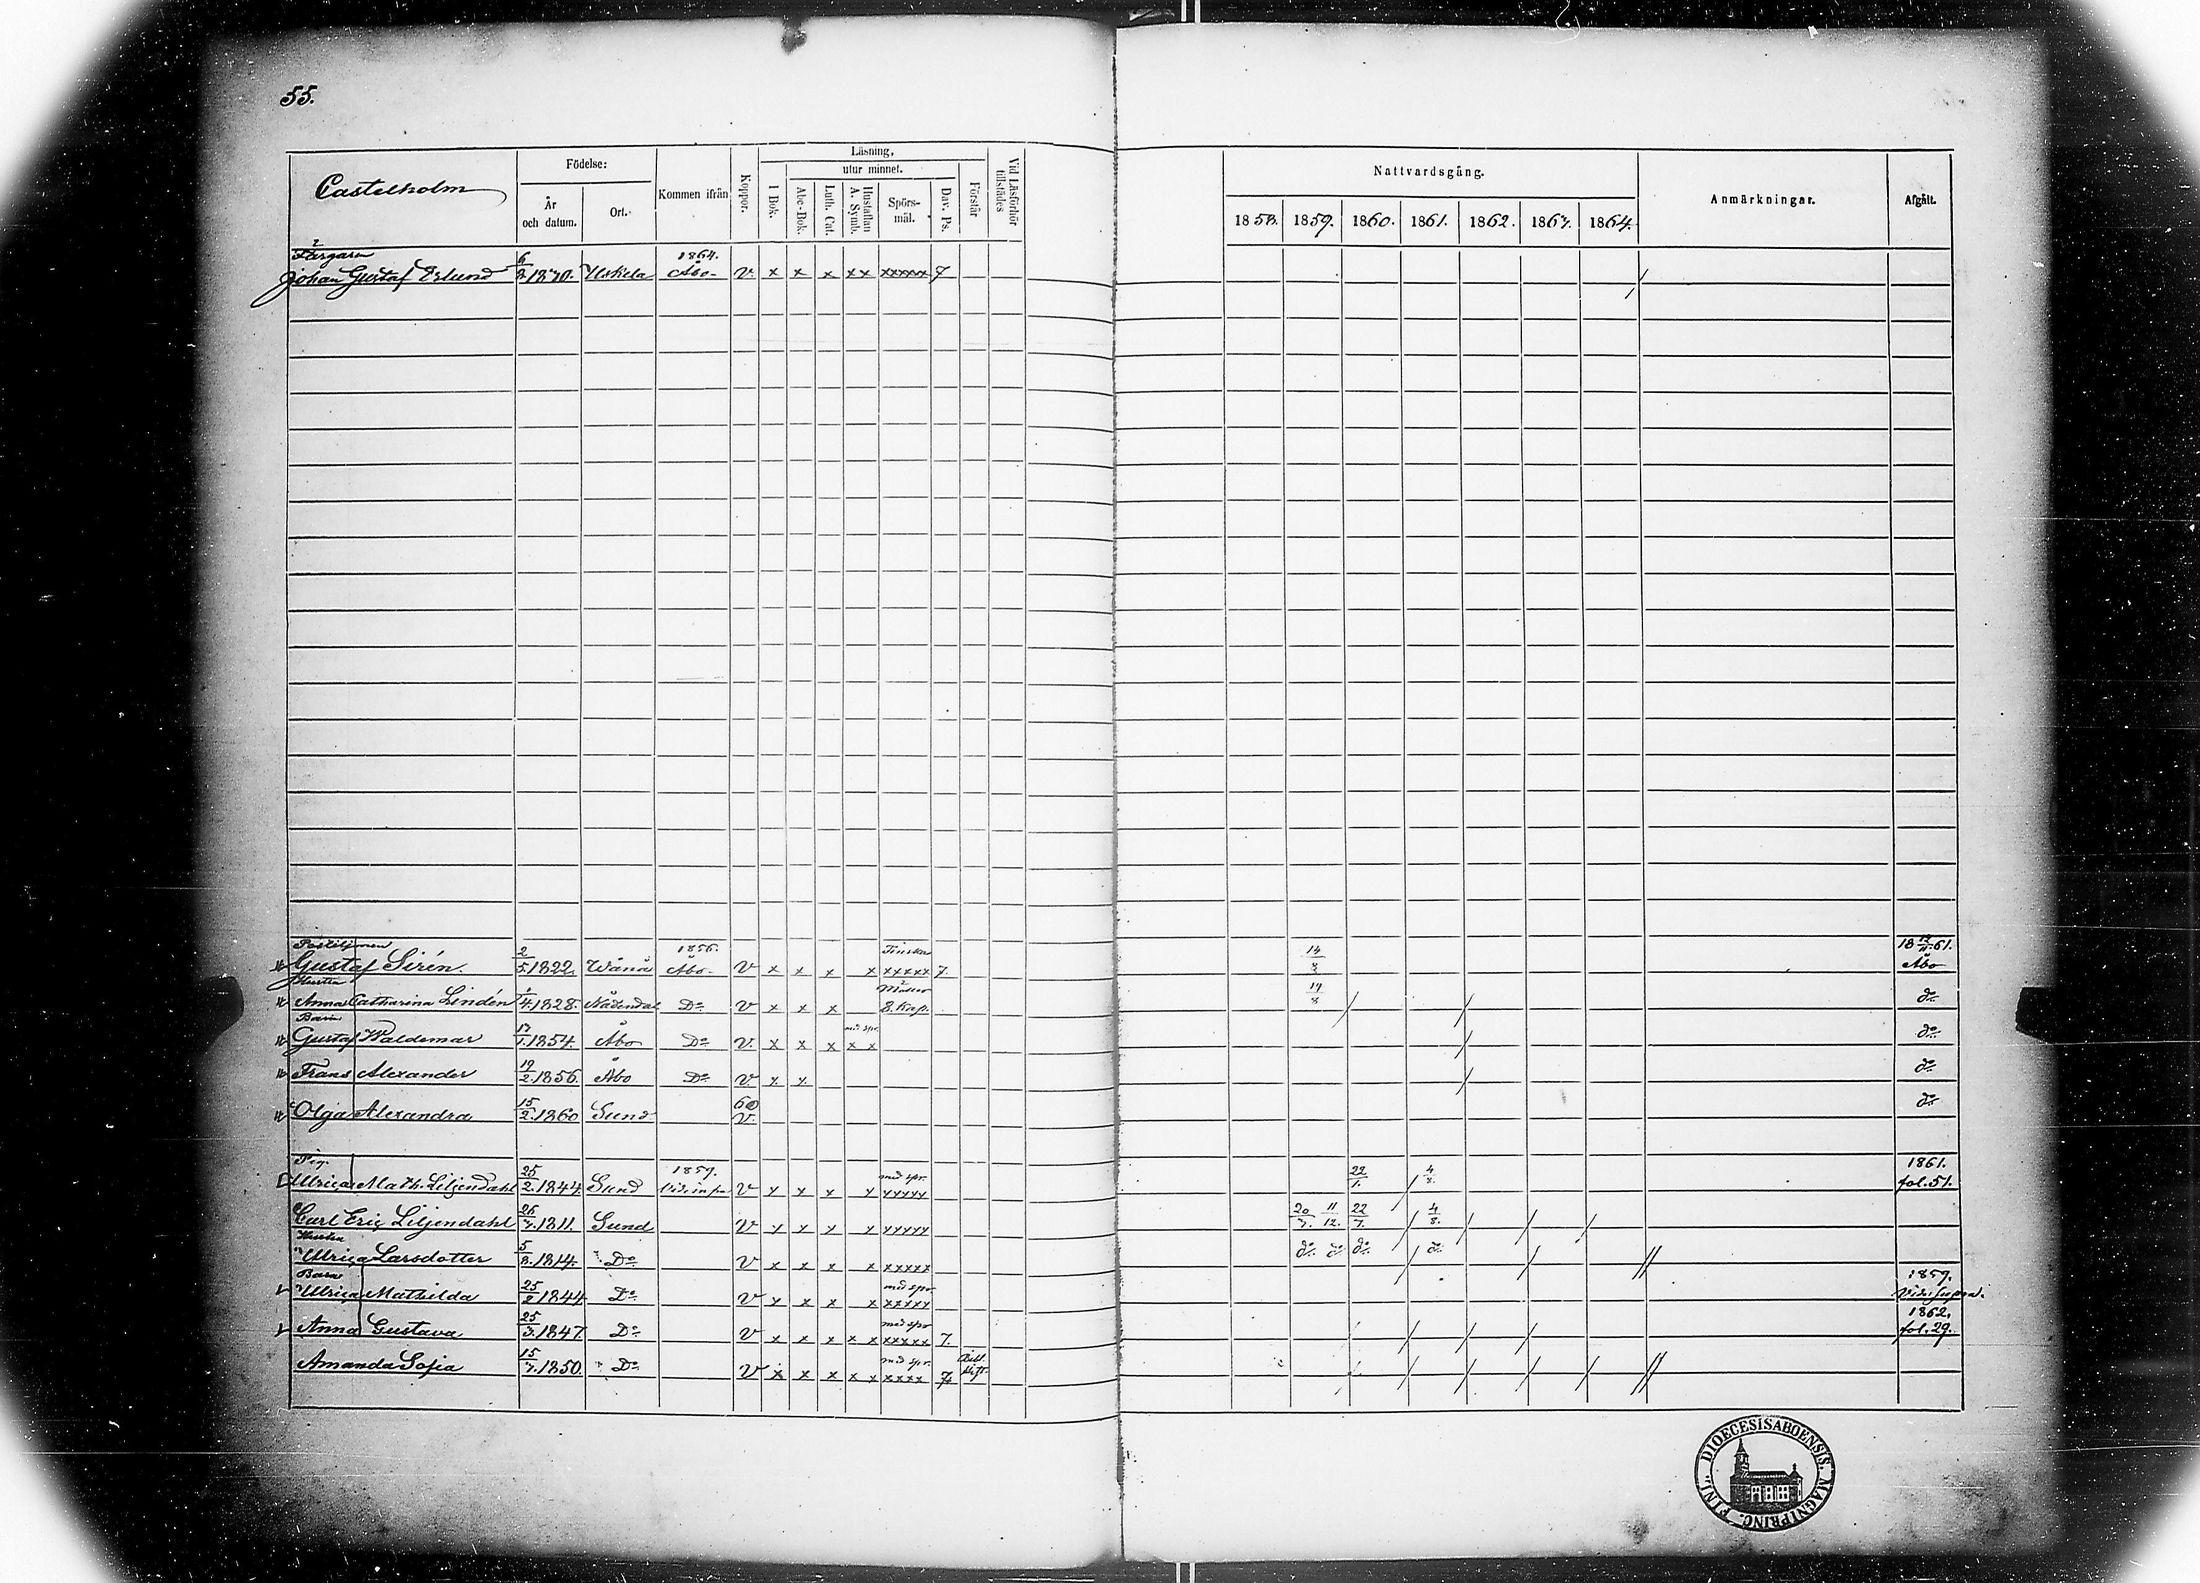 55.
Castelholm
Födelse:
År och datum.
Ort.
Kommen ifrån
Koppor.
Läsning,
utur minnet.
I Bok.
Abc-Bok.
Luth. Cat.
Hustaflan A. Symb.
Spörs-mål.
Dav. Ps.
Förstår
Vid Läsförhör tillstädes
Nattvardsgång.
1858. 1859. 1860. 1861. 1862. 1863. 1864.
Anmärkningar.
Afgått.
1864.
Johan Gustaf 6/8 Uskela Åbo v. x x x x x xxxxxx 7
Postiljonen 1856. 14/8
Gustaf Sirén. 2/5 1822. Åbo v x x x x xxxxx 7. Åbo
Hustru 14/8
Anna Catharina Lindén /4 1828. Nådendal Do v x x x do
Barn
Gustaf Waldemar 17/1 1854. Åbo Do v. x x x x x do
Frans Alexander 19/2 1856. Åbo Do v x x do
Olga Alexandra 15/2 1860 Sund 60 v. do
Pig. 1859. med spr. 22/1. 4/8. 1861.
Ulrica Math. Liljendahl 25/2 1844 Sund v x x x x xxxxx fol. 51.
Carl Eric Liljendahl 26/7 1811. Sund v x x x x xxxxx 20/7. 11/12. 22/7. 4/8.
Hustru
Ulrica Larsdotter 5/8 1814. Do v x x x x xxxxx do do do do
Barn med spr 1859.
Ulrica Mathilda 25/2 1844 Do v x x x x xxxxx Vide supra.
med spr 1862.
Anna Gustava 25/3 1847 Do v x x x x x xxxxx 7. fol. 29.
med spr.
Amanda Sofia 15/7 1850. Do v x x x x x xxxx 7
FINL. DIOECESIS ABOENSIS. MAGNI PRINC.